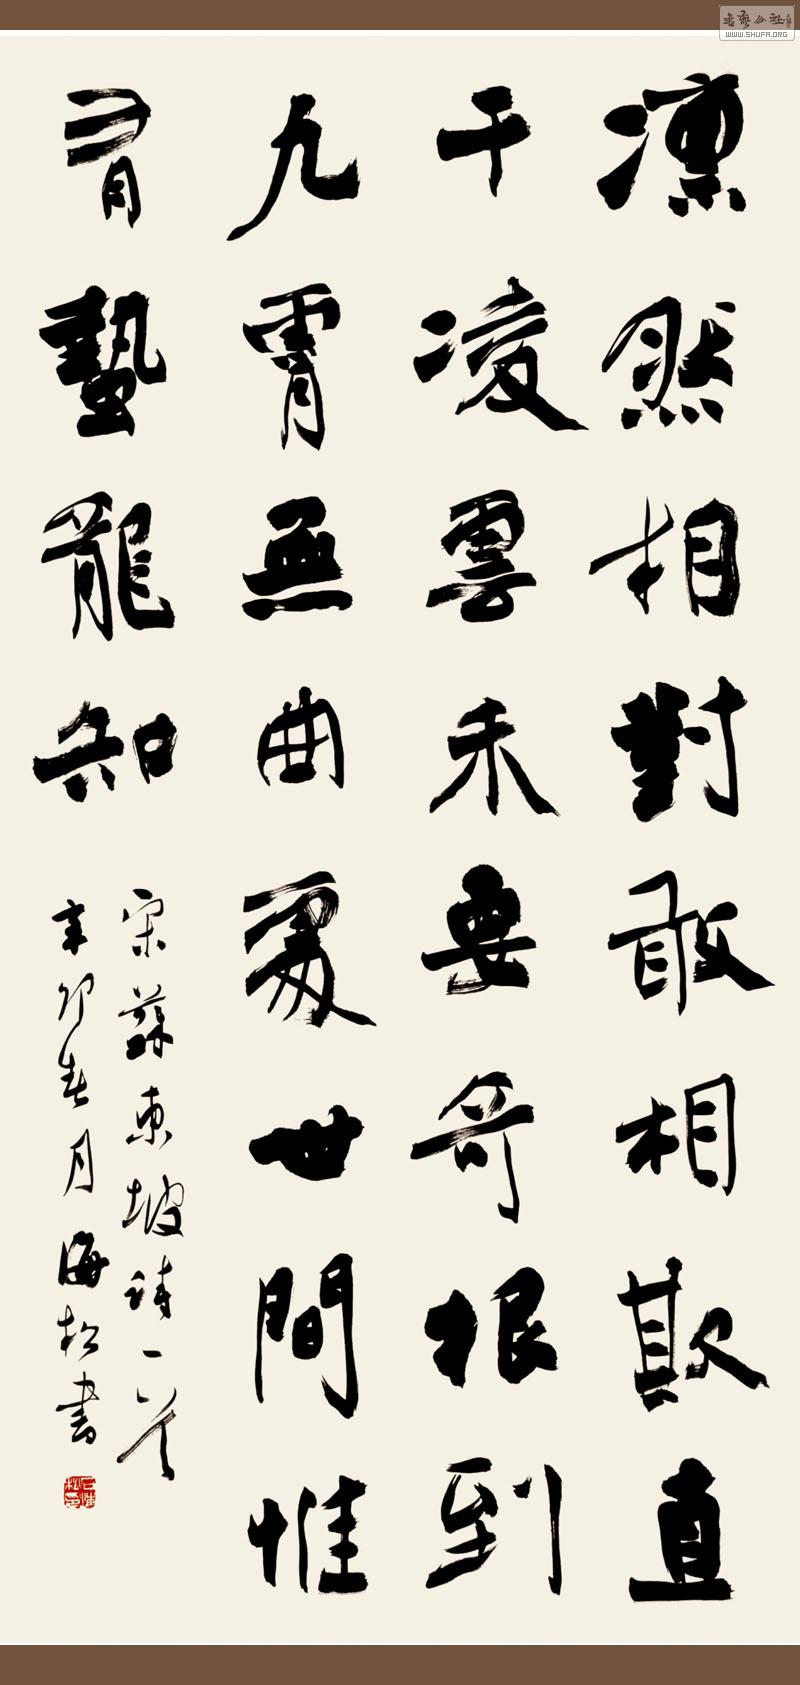 凛然相對敢相欺直
干凌雲未要奇根到
九霄無曲處世間惟
有蟄龍知
宋蘇東坡詩一首
辛卯春月海松書
書藝公社
WWW.SHUFA.ORG